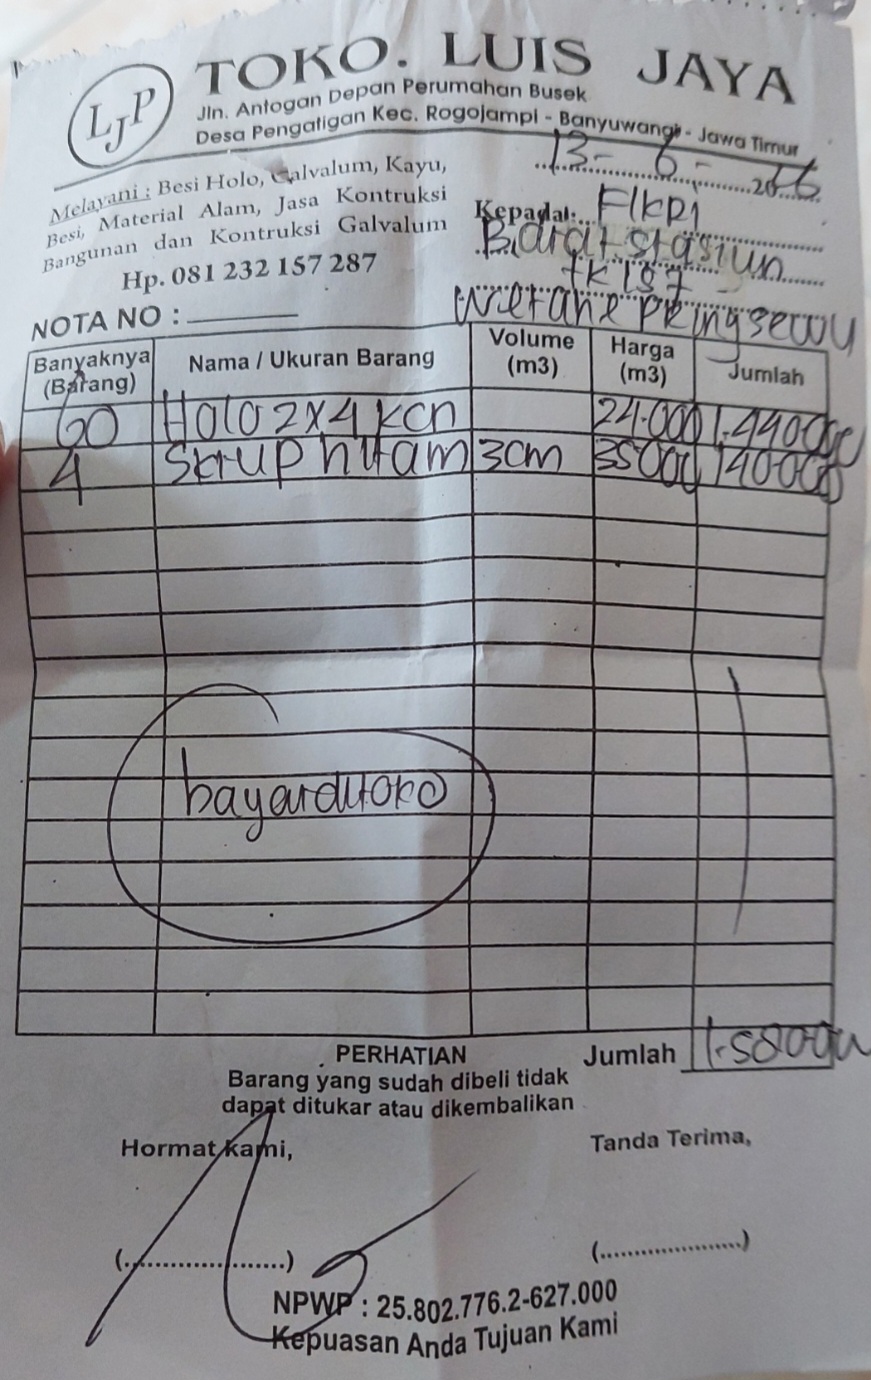 LJP
TOKO. LUIS JAYA
Jln. Antogan Depan Perumahan Busek
Desa Pengatigan Kec. Rogojampi - Banyuwangi - Jawa Timur
Melayani : Besi Holo, Galvalum, Kayu,
Besi, Material Alam, Jasa Kontruksi
Bangunan dan Kontruksi Galvalum
Hp. 081 232 157 287
13 - 6 - 20
Kepada:
Barat stasiun
NOTA NO :
Banyaknya (Barang) Nama / Ukuran Barang Volume (m3) Harga (m3) Jumlah
60 Holo 2x4 kcn 24.000 1.440000
4 Skrup hitam 3cm 35000 140000
bayarditoko
Jumlah 1.580000
PERHATIAN
Barang yang sudah dibeli tidak
dapat ditukar atau dikembalikan
Hormat kami, Tanda Terima,
(......................) (......................)
NPWP : 25.802.776.2-627.000
Kepuasan Anda Tujuan Kami